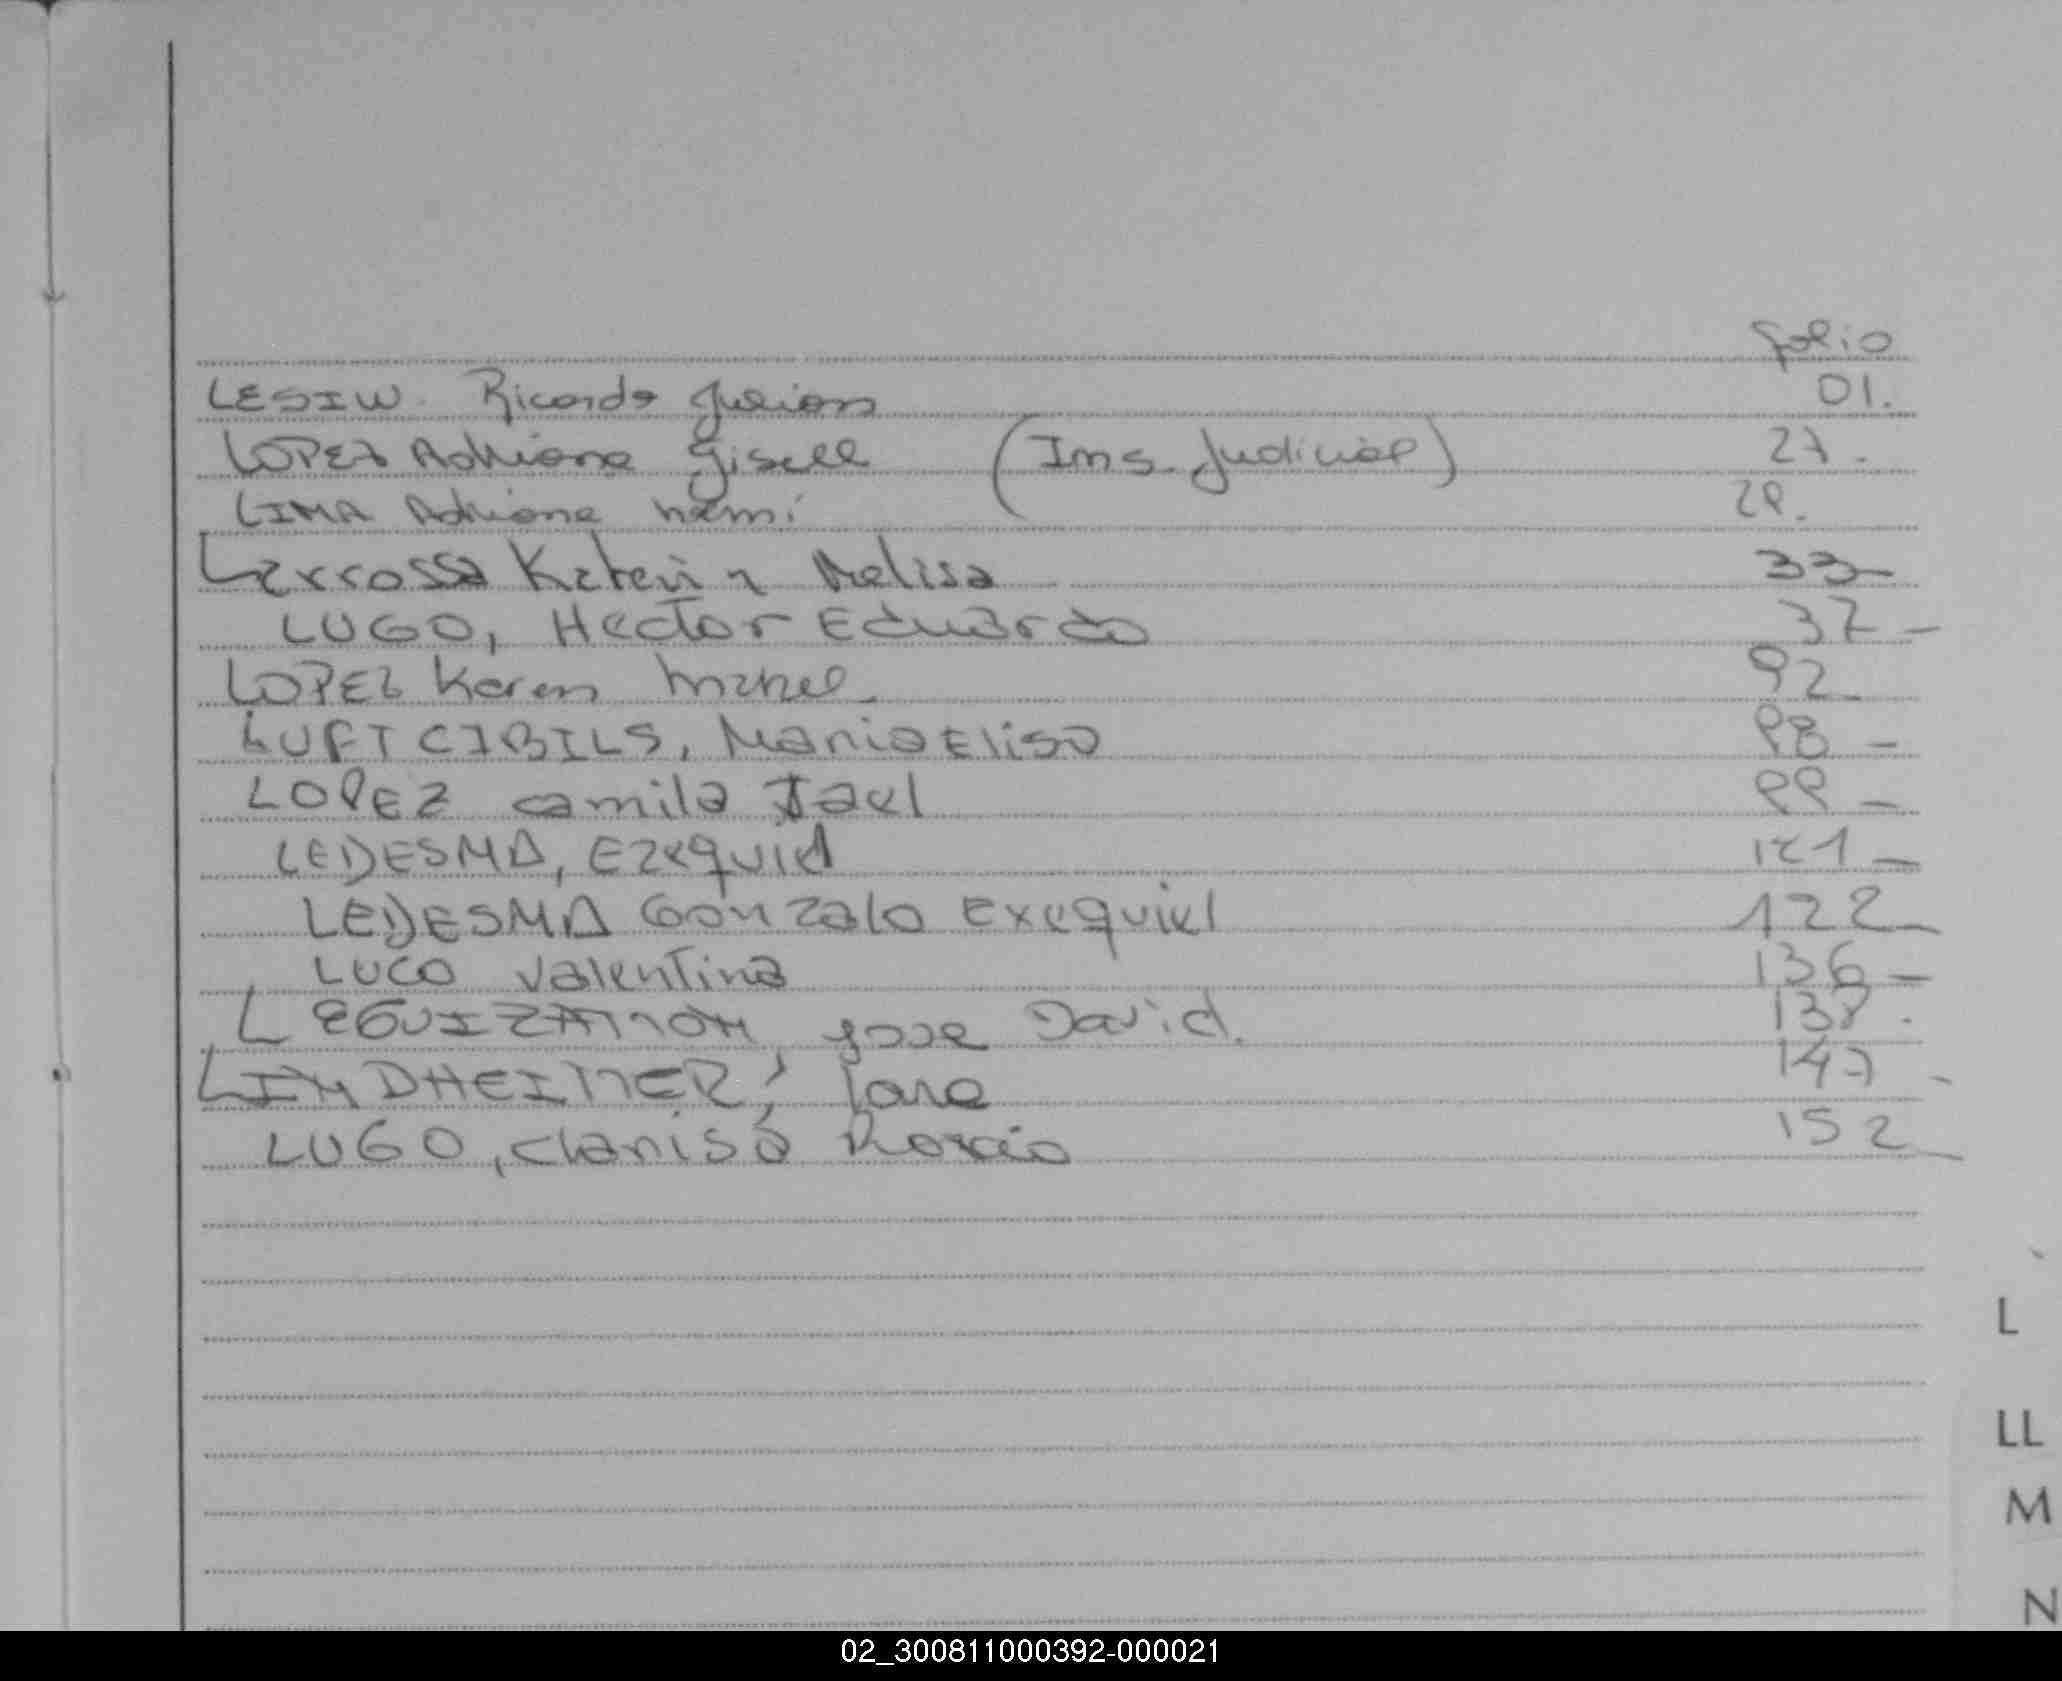 folio
LESIW. Ricardo Julian 01.
LOPEZ Adriana Gisell (Ins. Judicial) 27.
LIMA Adriana 29.
Larrossa Katerin Melisa 33-
LUGO, Hector Eduardo 37-
LOPEZ Karen 92
LUFT CIBILS, Maria Elisa 98-
LOPEZ camila Jael 99-
LEDESMA, Ezequiel 121-
LEDESMA Gonzalo Exequiel 122-
LUCO Valentina 136-
LEGUIZAMON, Jose David. 138.
LINDHEIMER, Iara 147-
LUGO, Clarisa Rocio 152-
L
LL
M
N
02_300811000392-000021